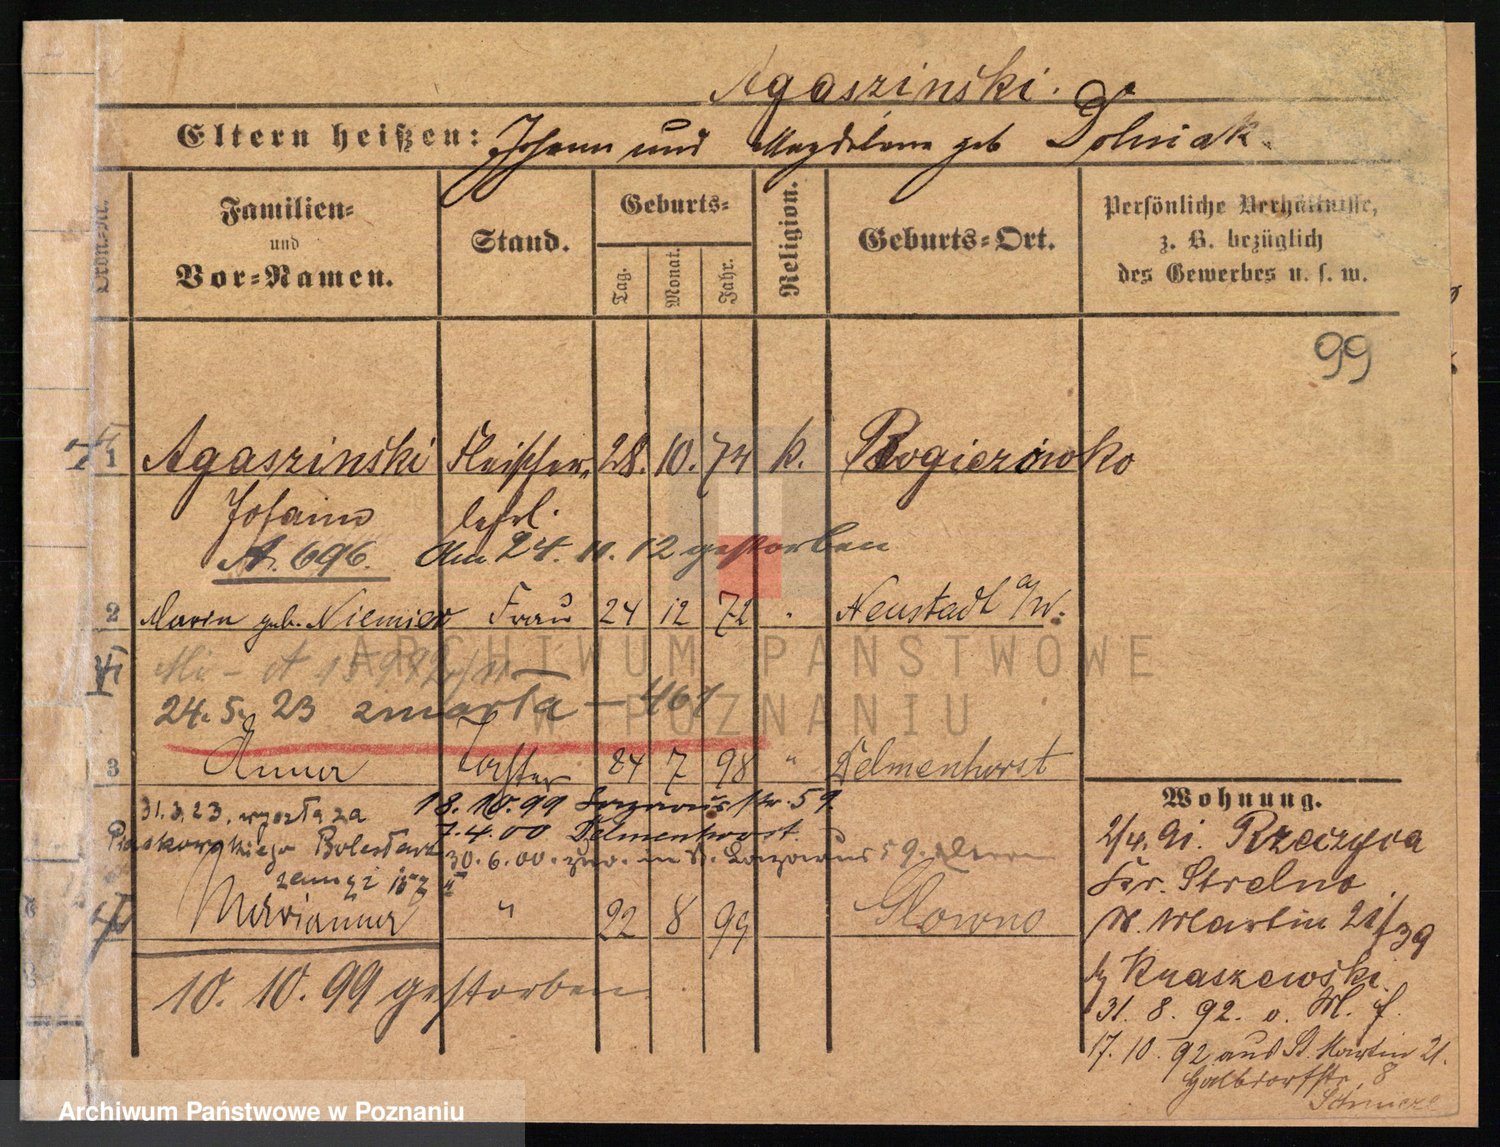 Agaszinski.
Eltern heißen: Johann und Magdalena geb Dolniak.
Ordn.-Nr.
Familien-
und
Vor-Namen.
Stand.
Geburts-
Tag.
Monat.
Jahr.
Religion.
Geburts-Ort.
Persönliche Verhältnisse,
z. B. bezüglich
des Gewerbes u. s. w.
99
1 Agaszinski Fleischer 28. 10. 74 k. Rogiezowko
Johann lehrl.
A. 696. Am 24. 11. 12 gestorben
2 Maria geb. Niemier Frau 24 12 72 Neustadt a/W.
24. 5. 23 zmarła - 461
3 Anna Tochter 24 7 98 " Delmenhorst
31.3.23. wyszła za 18. 10. 99 Lazarus str. 59.
Bolesława 7.4.00 Delmenhorst
30. 6. 00. zur. in St. Lazarus 59.
Marianna " 22 8 99 Glowno
10. 10. 99 gestorben
Wohnung.
2/4. 91. Rzeczyca
Kr. Strelno
St. Martin 21/39
Kraszewski.
31. 8. 92. v. M. f.
17. 10. 92 aus St. Martin 21.
Halbdorfstr. 8
ARCHIWUM PAŃSTWOWE
W POZNANIU
Archiwum Państwowe w Poznaniu